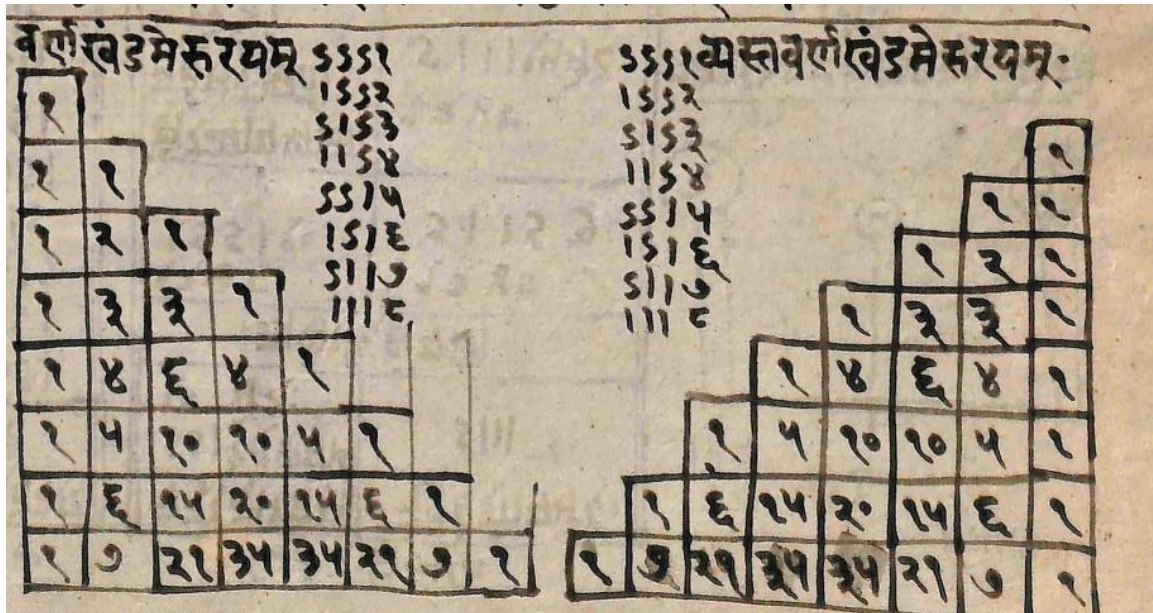 वर्णखंडमेरुरयम्
ऽऽऽ१
।ऽऽ२
ऽ।ऽ३
।।ऽ४
ऽऽ।५
।ऽ।६
ऽ।।७
।।।८
१
१ १
१ २ १
१ ३ ३ १
१ ४ ६ ४ १
१ ५ १० १० ५ १
१ ६ १५ २० १५ ६ १
१ ७ २१ ३५ ३५ २१ ७ १
ऽऽऽ१
।ऽऽ२
ऽ।ऽ३
।।ऽ४
ऽऽ।५
।ऽ।६
ऽ।।७
।।।८
व्यस्तवर्णखंडमेरुरयम्
१
१ १
१ २ १
१ ३ ३ १
१ ४ ६ ४ १
१ ५ १० १० ५ १
१ ६ १५ २० १५ ६ १
१ ७ २१ ३५ ३५ २१ ७ १